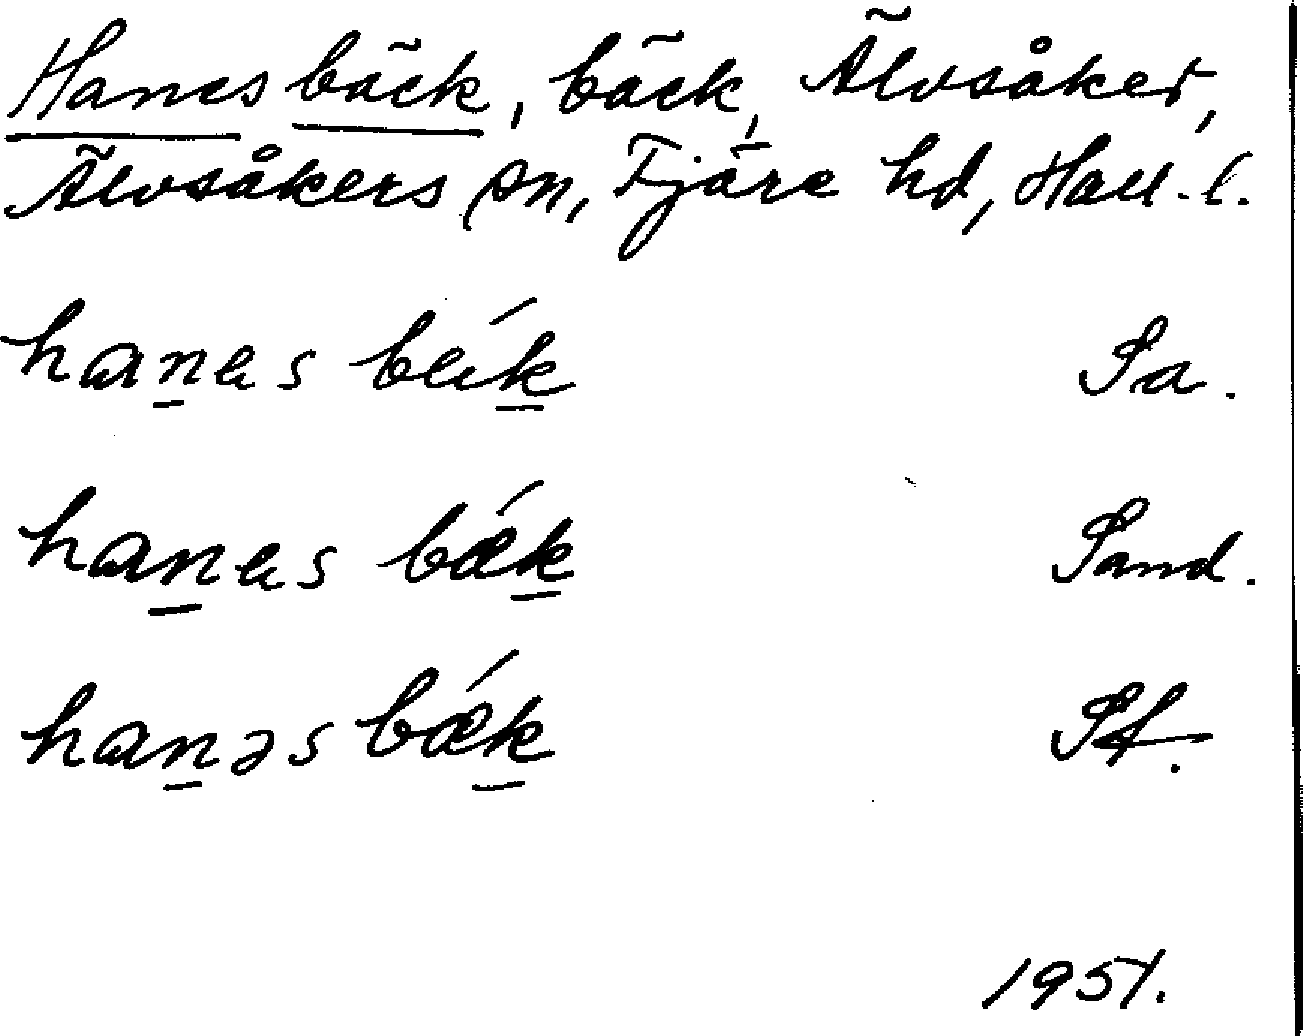 Hanes bäck, bäck, Älvsåker,
Älvsåkers sn, Fjäre hd, Hall. l.
hanes bék Sa.
hanes bǽk Sand.
hanəs bǽk Sf.
1951.